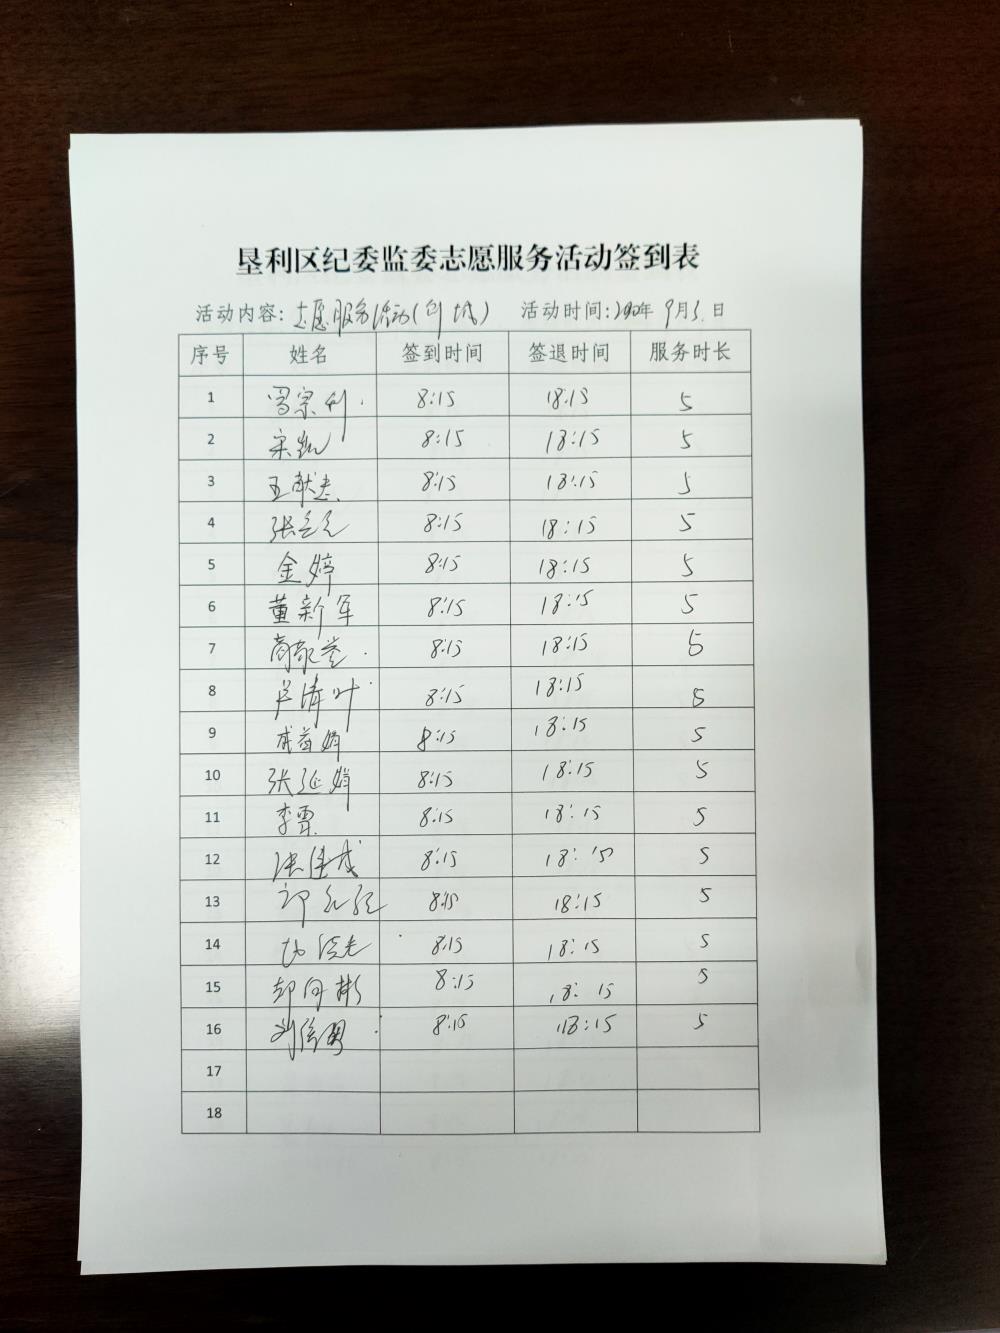 垦利区纪委监委志愿服务活动签到表
活动内容: 志愿服务活动(创城) 活动时间: 年 9月 日
序号 姓名 签到时间 签退时间 服务时长
1 8:15 18:15 5
2 宋凯 8:15 18:15 5
3 王献志 8:15 18:15 5
4 8:15 18:15 5
5 金婷 8:15 18:15 5
6 董新军 8:15 18:15 5
7 8:15 18:15 5
8 卢清叶 8:15 18:15 5
9 8:15 18:15 5
10 张延娟 8:15 18:15 5
11 8:15 18:15 5
12 8:15 18:15 5
13 8:15 18:15 5
14 8:15 18:15 5
15 8:15 18:15 5
16 8:15 18:15 5
17
18